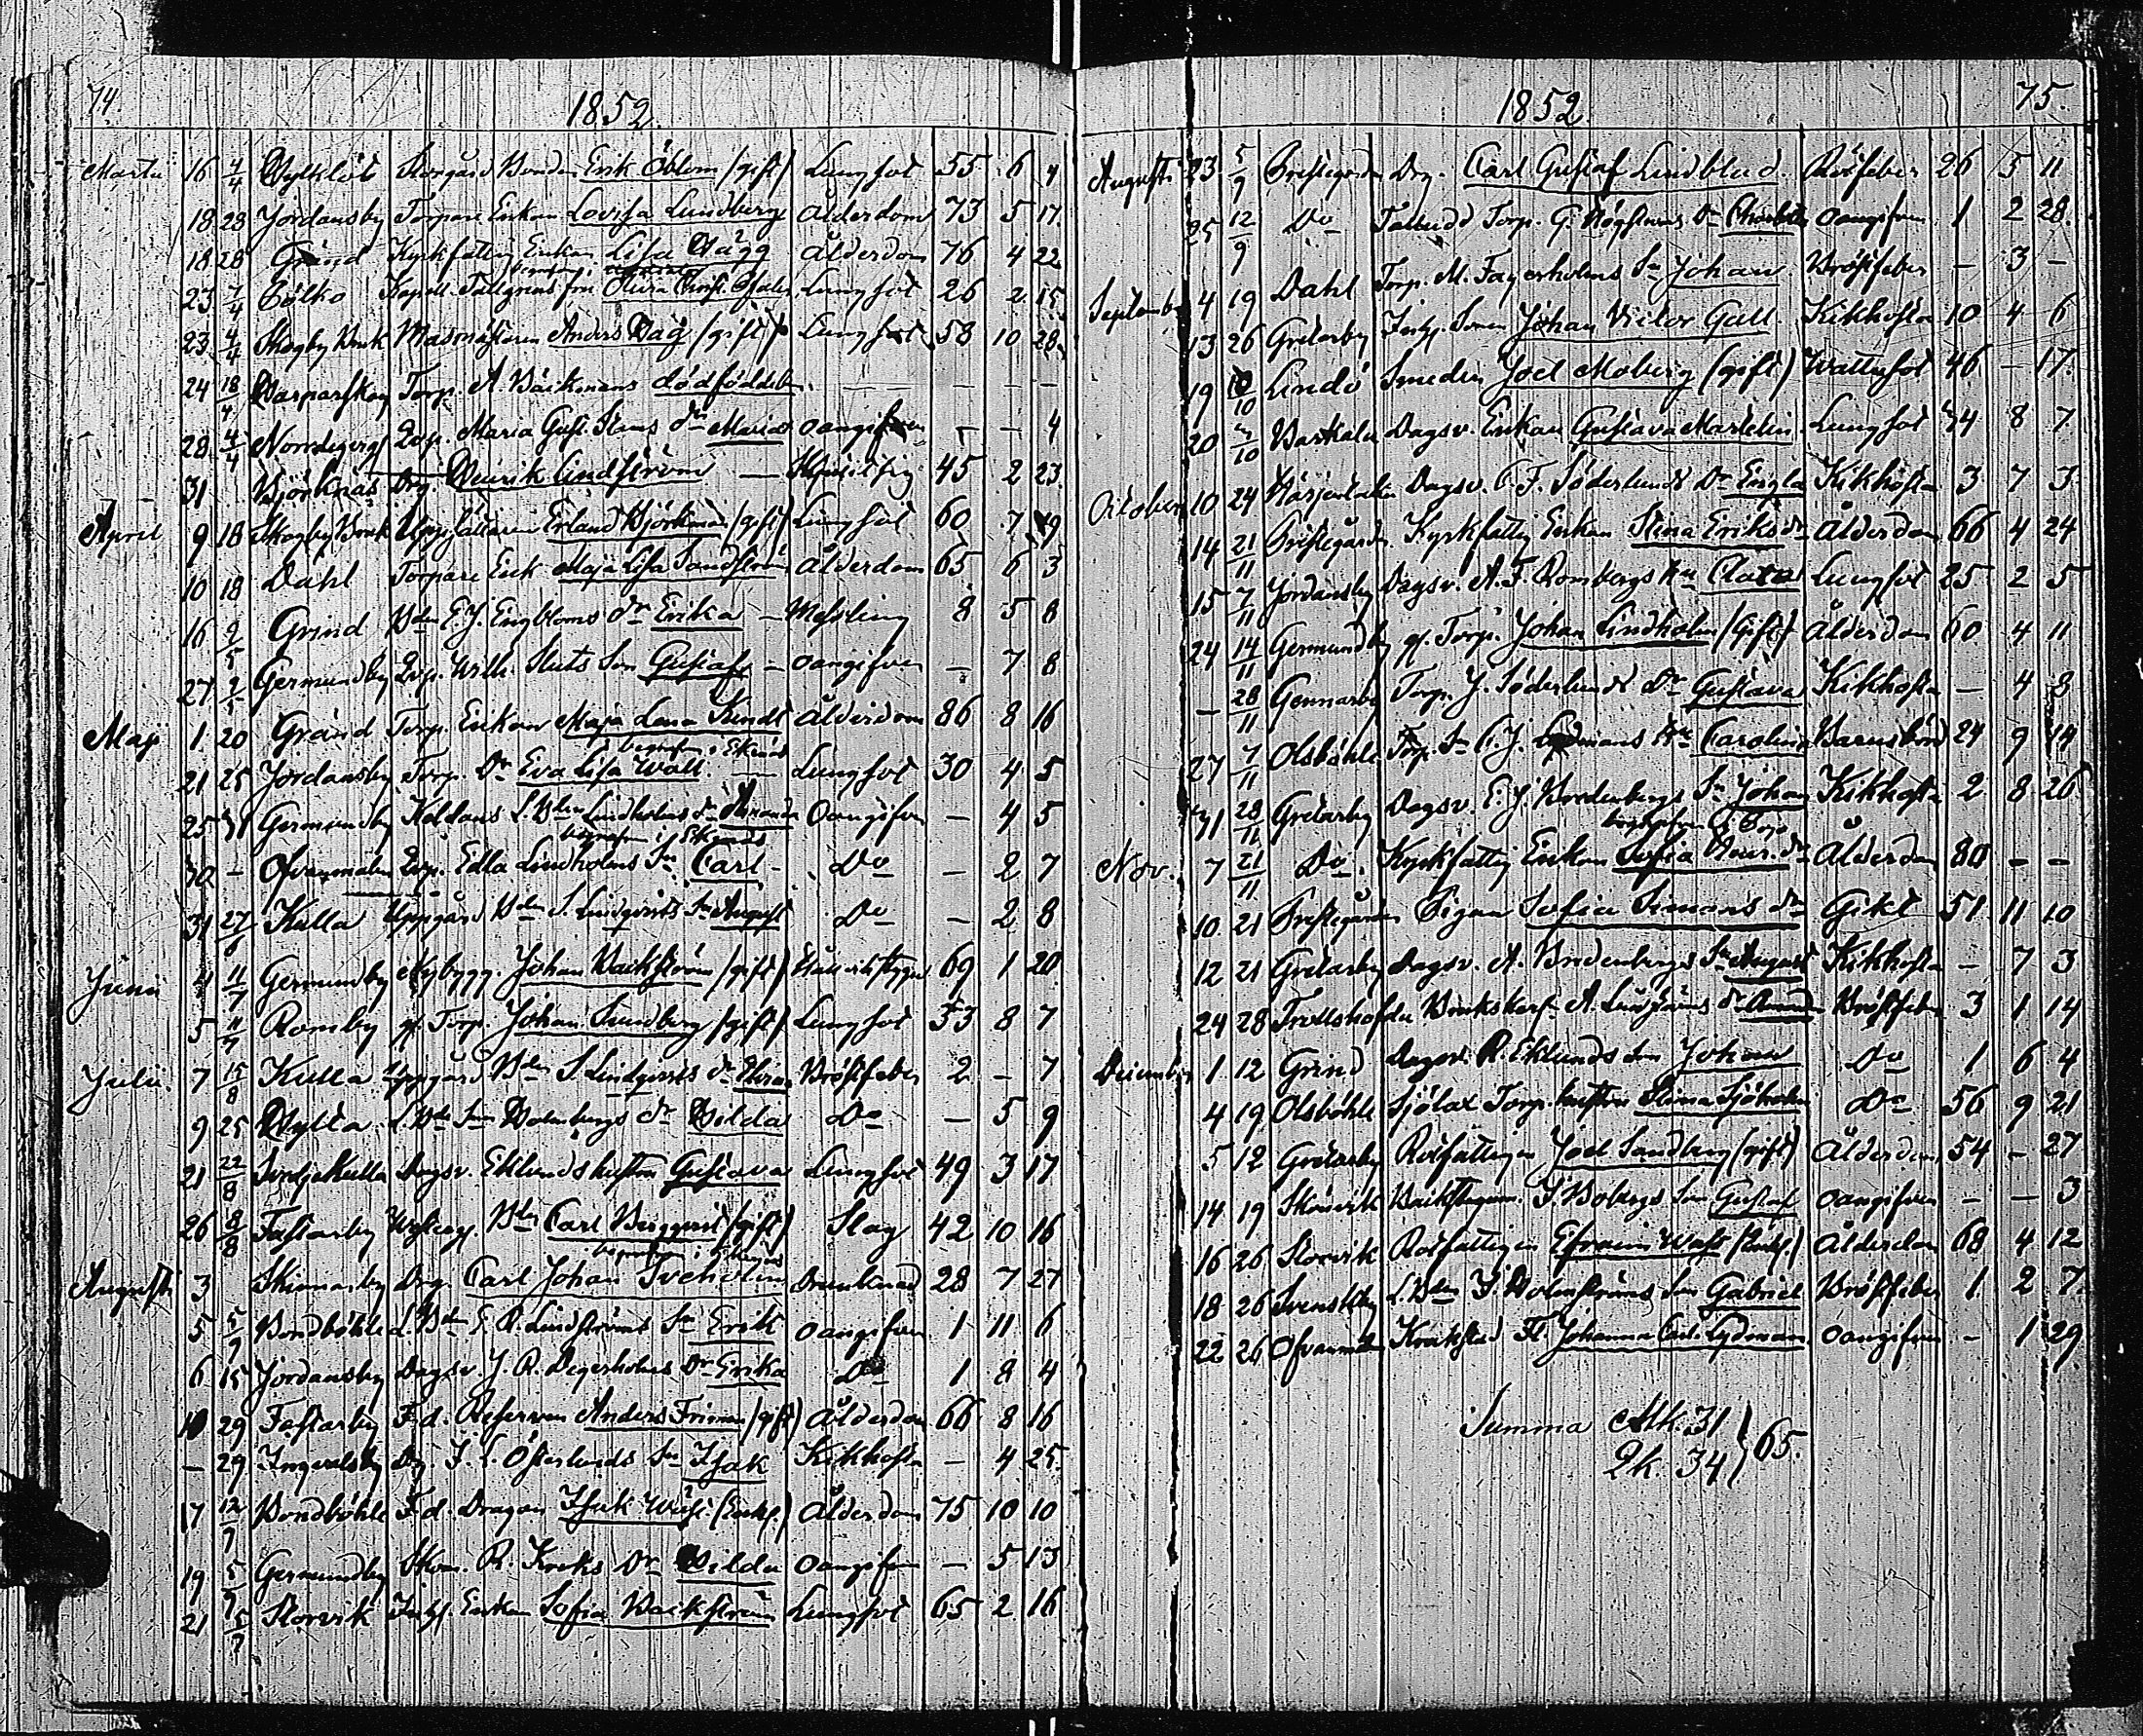 74
1852.
Martii 16 4/4 Storgård Bonden Erik Öblom (gift) Lungsot 55 6 4
18 28 Jordansby Torpare Enkan Lovisa Lundberg Ålderdom 73 5 17.
18 28 Grind Kyrkfattig Enkan Lisa Hägg Ålderdom 76 4 22
23 7/4 Kapell. Tallgrens fru Lungsot 26 2 15.
23 4/4 Skogby Bruk Masmästaren Anders Dag (gift) Lungsot 58 10 28.
24 18/4 Torp. A. Bäckmans dödfödde — — —
28 4/4 Qvp. Maria Gust. dr Maria oangifven — — 4
31 Björknäs Drg. Henrik Lindström — 45 2 23.
April 9 18 Skogby Bruk Uppsättaren Erland Björkman (gift) Lungsot 60 7 9
10 18 Dahl Torpare Enk Maja Lisa Sandström Ålderdom 65 6 3
16 9/5 Grind Bdn E. J. Engbloms dr Erika — Messling 8 5 8
27 9/5 Germundby Qvp. Wilh. Sluts Son Gustaf — oangifven — 7 8
Maji 1 20 Gränd Torp. Enkan Maja Lena Kindt Ålderdom 86 8 16
begrafven i Ekenäs
21 25 Jordansby Torp. Dr Eva Lisa Wall. — Lungsot 30 4 5
25 31 Germundby Källans L. Bdn Lindholms dr Amanda Oangifven — 4 5
begrafven i Ekenäs
30 — Ofvanmalm Qvp. Edla Lindholms Sn Carl - Do — 2 7
31 27/6 Kulla Uppgård Bdn S. Lindqvists Sn August Do — 2 8
Junii 4 11/7 Germundby Nybygg. Johan Backström (gift) 69 1 20
5 11/7 Romby gl. Torp. Johan Sundberg (gift) Lungsot 53 8 7
Julii. 7 15/8 Kulla Uppgård Bdn S. Lindqvists dr Bröstfeber 2 — 7
9 25 L. Bdn Sn Holmbergs dr Hilda Do — 5 9
21 22/8 Svedjekulla Dagsv. Eklunds hustru Gustava Lungsot 49 3 17
26 8/8 Fastarby Westerg. Bdn Carl Berggvist (gift) Slag 42 10 16
begrafven i Ekenäs
Augusti 3 Skinnarby Drg. Carl Johan Tveholm Drunknad 28 7 27
5 5/9 Bondböhle L. Bdn E. R. Lindströms Sn Erik oangifven 1 11 6
6 15 Jordansby Dagsv J. R. Degerholms Dr Erika Do 1 8 4
10 29 Fastarby F.d. Reserven Anders Friman (gift) Ålderdom 66 8 16
— 29 Ingvalsby Drg. J. L. Österlunds Sn Isak Kikhosta — 4 25.
17 12/9 Bondböhle F.d. Dragon Isak (Enkl.) Ålderdom 75 10 10
19 5/9 Germundby Skom. R. Kroks Dr Hilda oangifven — 5 13
21 5/9 Storvik Inhys. Enkan Sofia Backström Lungsot 65 2 16
1852.
75.
Augusti 23 5/9 Prestgården Drg. Carl Gustaf Lindblad. Rötfeber 26 5 11
25 12/9 Do Torp. G. Högströms Dr Charlotta oangifven 1 2 28.
September 4 19 Dahl Torp. M. Fagerholms Sn Johan Bröstfeber — 3 —
13 26 Gretarby Inhys. Sonen Johan Victor Gall. Kikhosta 10 4 6
19 10/10 Lindö Smeden Joel Moberg (gift) Wattusot 46 — 17.
20 Baskala Dagsv. Enkan Gustava Martelin. Lungsot 74 8 7
October 10 24 Dagsv. C. F. Söderlunds Dr Engla Kikhosta 3 7 3
14 21/11 Prestegården Kyrkfattig Enkan Stina Eriks dr Ålderdom 66 4 24
15 7/11 Jordansby Dagsv. A. F. Rombergs Clara Lungsot 25 2 5
24 14/11 Germundby gl. Torp. Johan Lindholm (Gift) Ålderdom 60 4 11
— 28/11 Gennarby Torp. J. Söderlunds Dr Gustava Kikhosta — 4 3
27 7/11 Olsböhle Torp. Sn C. J. Carolina Barnsbörd 24 9 14
31 28/11 Gretarby Dagsv. E. J. Bredenbergs Sn Johan Kikhosta 2 8 26
Nov. 7 21/11 Do. Kyrkfattig Enkan Sofia Henr. dr Ålderdom 80 — —
10 21 Prestgården Pigan Sofia Simons dr Gikt 51 11 10
12 21 Gretarby Dagsv. A. Bredenbergs Sn August Kikhosta — 7 3
24 28 Trollshofda Brukskarl A. dr Bröstfeber 3 1 14
December 1 12 Grind Dagsv. R. Eklunds Son Johan Do 1 6 4
4 19 Olsböhle Sjölax Torp. hustru Stina Sjöholm Do 56 9 21
5 12 Gretarby Rotfattigen Joel Sandberg (gift) Ålderdom 54 — 27
14 19 Skönvik J. Bobergs Son Gustaf oangifven — — 3
16 26 Storvik Rotfattigen Efraim Wass (Enkl.) Ålderdom 68 4 12
18 26 Svenskby L. Bdn J. Holmströms Son Gabriel Bröstfeber 1 2 7
22 26 Ofvanmalm Fl. Johanna Carl. Lydman. oangifven — 1 29.
Summa Mk. 31
Qk. 34
65.